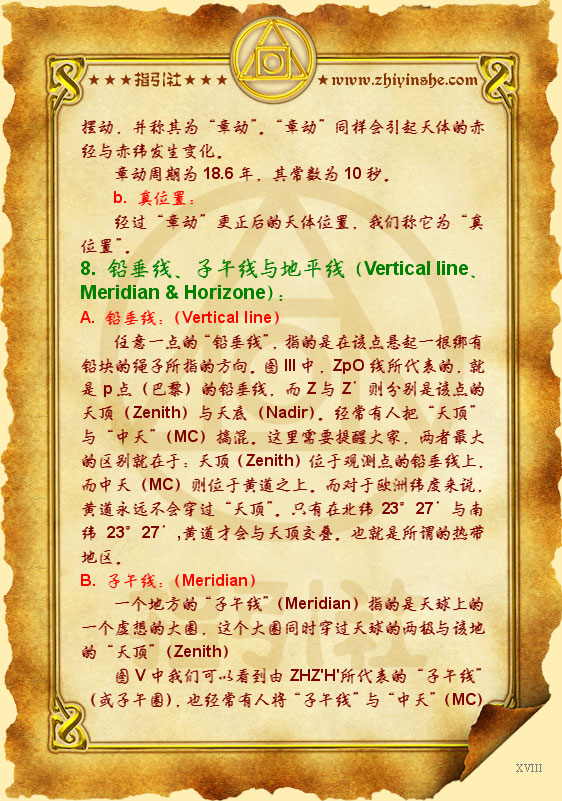 ★★★指引社★★★ ★www.zhiyinshe.com
摆动，并称其为“章动”。“章动”同样会引起天体的赤
经与赤纬发生变化。
章动周期为 18.6 年，其常数为 10 秒。
b. 真位置：
经过“章动”更正后的天体位置，我们称它为“真
位置”。
8. 铅垂线、子午线与地平线（Vertical line、
Meridian & Horizone）：
A. 铅垂线：（Vertical line）
任意一点的“铅垂线”，指的是在该点悬起一根绑有
铅块的绳子所指的方向。图 III 中，ZpO 线所代表的，就
是 p 点（巴黎）的铅垂线，而 Z 与 Z′ 则分别是该点的
天顶（Zenith）与天底（Nadir）。经常有人把“天顶”
与“中天”（MC）搞混。这里需要提醒大家，两者最大
的区别就在于：天顶（Zenith）位于观测点的铅垂线上，
而中天（MC）则位于黄道之上。而对于欧洲纬度来说，
黄道永远不会穿过“天顶”。只有在北纬 23° 27′ 与南
纬 23° 27′ ,黄道才会与天顶交叠。也就是所谓的热带
地区。
B. 子午线：（Meridian）
一个地方的“子午线”（Meridian）指的是天球上的
一个虚想的大圈，这个大圈同时穿过天球的两极与该地
的“天顶”（Zenith）
图 V 中我们可以看到由 ZHZ'H'所代表的“子午线”
（或子午圈），也经常有人将“子午线”与“中天”（MC）
指引社
XVIII